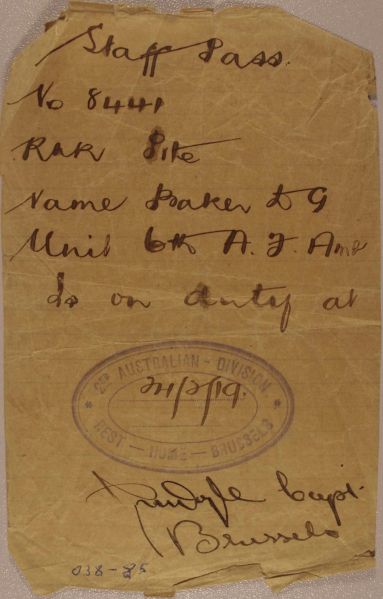 Staff Pass.
No 8441
Rank Pte
Name Baker D G
Unit 6th A. F. Amb
Is on duty at
2ND AUSTRALIAN - DIVISION
REST - HOME - BRUSSELS
Capt.
Brussels
038-85